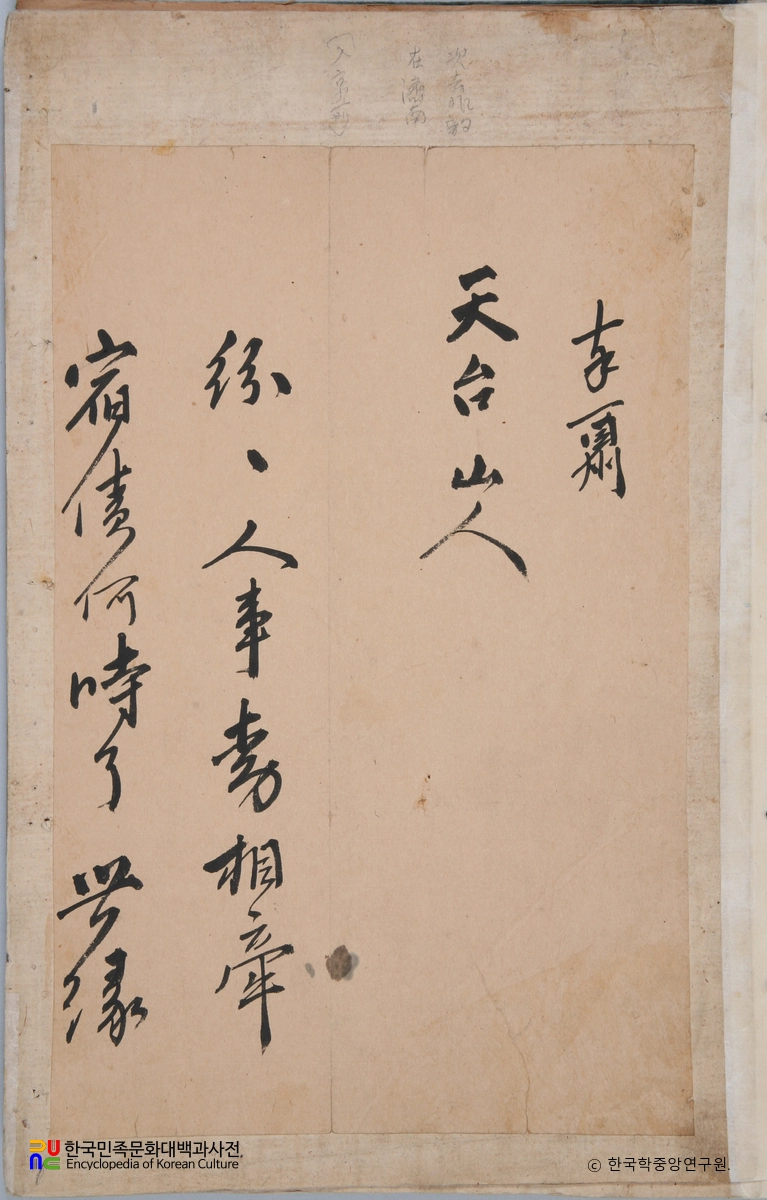 次去非韵
在濟南
奉酬
天台山人
紛〻人事勞相牽
宿債何時了緣
한국민족문화대백과사전
Encyclopedia of Korean Culture
ⓒ 한국학중앙연구원